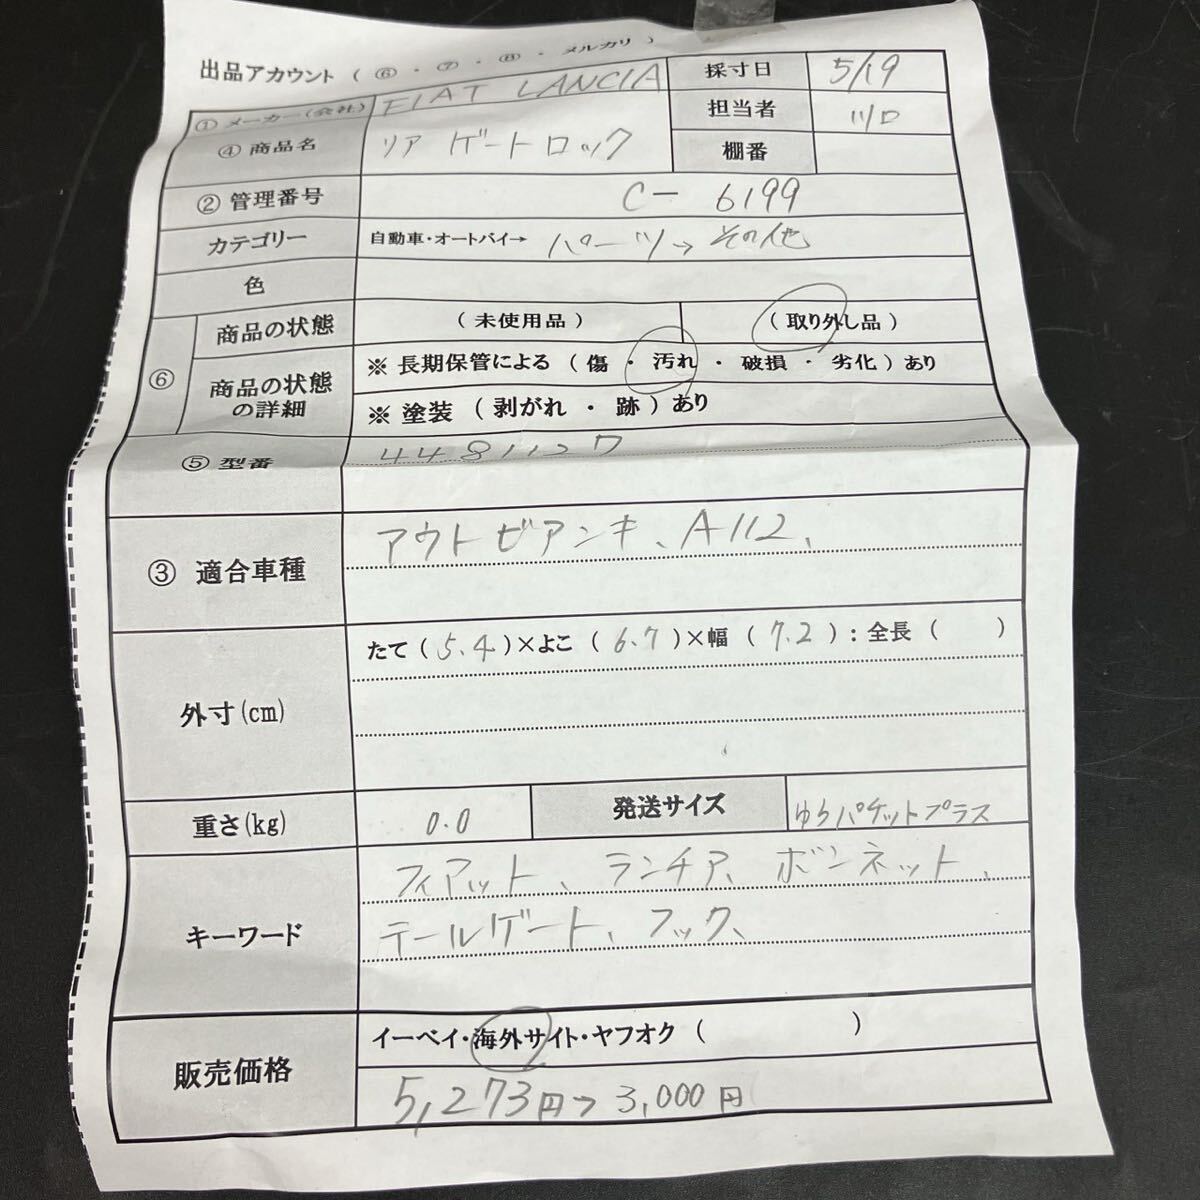 出品アカウント ( ⑥ ・ ⑦ ・ ⑧ ・ メルカリ )
① メーカー(会社) FIAT LANCIA 採寸日 5/19
④ 商品名 リアゲートロック 担当者 川口
棚番
② 管理番号 C- 6199
カテゴリー 自動車・オートバイ→ パーツ→ その他
色
⑥ 商品の状態 ( 未使用品 ) ( 取り外し品 )
商品の状態の詳細 ※ 長期保管による ( 傷 ・ 汚れ ・ 破損 ・ 劣化 ) あり
※ 塗装 ( 剥がれ ・ 跡 ) あり
⑤ 型番 4481127
③ 適合車種 アウトビアンキ、A112、
外寸(cm) たて ( 5.4 ) ×よこ ( 6.7 ) ×幅 ( 7.2 ) : 全長 ( )
重さ(kg) 0.0 発送サイズ ゆうパケットプラス
キーワード フィアット、ランチア、ボンネット、
テールゲート、フック、
販売価格 イーベイ・海外サイト・ヤフオク ( )
5,273円→3,000円